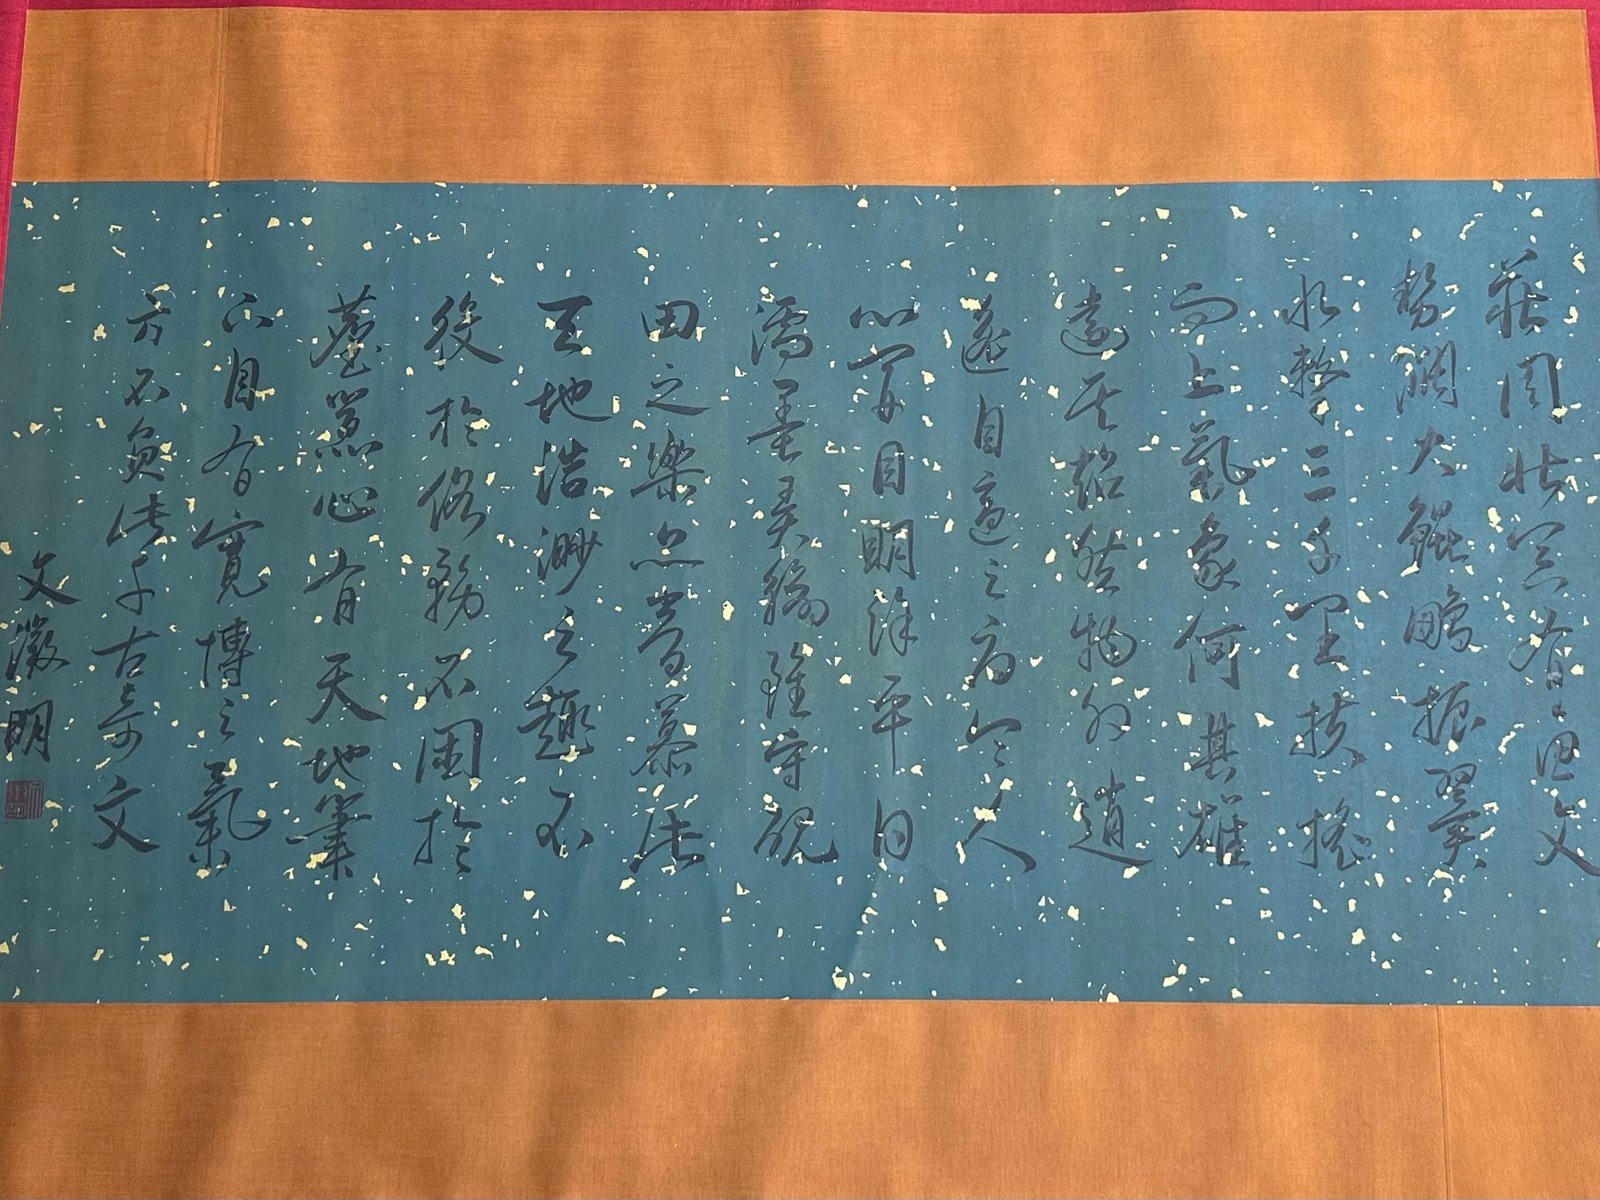 莊周北冥有魚文
勢闊大鯤鵬振翼
水擊三千里扶搖
而上氣象何其雄
遠其超然物外逍
遙自適之為令人
心閒目明余平日
濡墨弄翰雖守硯
田之樂亦嘗慕此
天地浩渺之趣不
役於俗務不困於
塵累心有天地筆
下自有寬博之氣
方不負此千古奇
文
文徵明